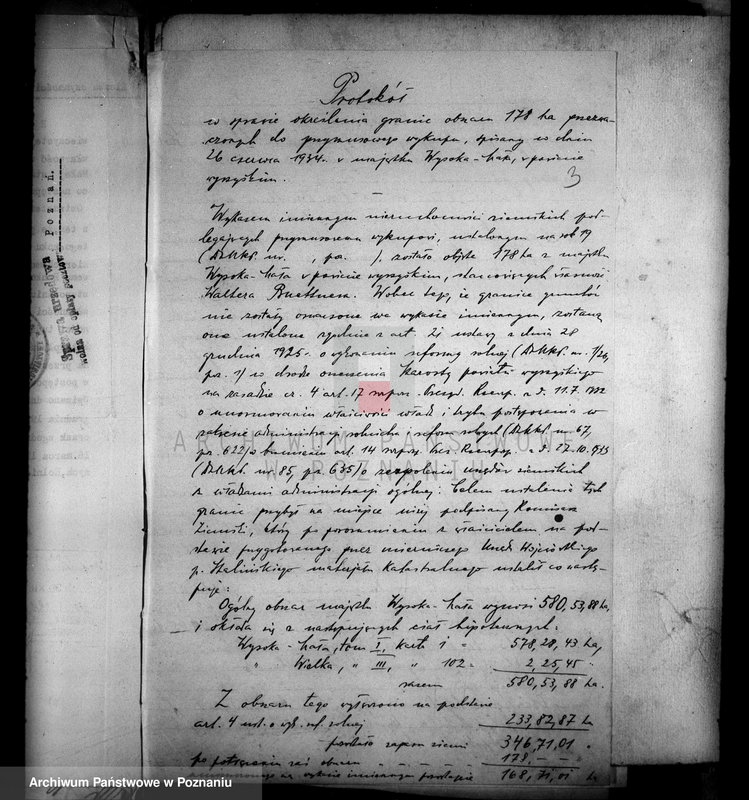 Protokół
w sprawie określenia granic obszaru 178 ha przezna-
czonych do przymusowego wykupu, spisany w dniu
26 czerwca 1934 r. w majątku Wysoka-mała, w powiecie
wyrzyskim.
3
Wykazem imiennym nieruchomości ziemskich pod-
legających przymusowemu wykupowi, ustalonym na rok 19
(Dz.U.R.P. nr. , poz. ), zostało objęte 178 ha z majątku
Wysoka-mała w powiecie wyrzyskim, stanowiących własność
Waltera Buettnera. Wobec tego, że granice gruntów
nie zostały oznaczone we wykazie imiennym, zostaną
one ustalone zgodnie z art. 21 ustawy z dnia 28
grudnia 1925 r. o wykonaniu reformy rolnej (Dz.U.R.P. nr. 1/26,
poz. 1) w drodze orzeczenia Starosty powiatu wyrzyskiego
na zasadzie art. 17 rozporz. Prezyd. Rzeczp. z d. 11.7. 1932
o unormowaniu właściwości władz i trybu postępowania w
zakresie administracji rolnictwa i reform rolnych (Dz.U.R.P. nr. 67,
poz. 622) o brzmieniu art. 14 rozporz. Prez. Rzeczp. z d. 27.10.1933
(Dz.U.R.P. nr. 85, poz. 635) o zespoleniu urzędów ziemskich
z władzami administracji ogólnej. Celem ustalenia tych
granic przybył na miejsce niżej podpisany Komisarz
Ziemski, który po porozumieniu z właścicielem na pod-
stawie przygotowanego przez mierniczego Urzędu Wojewódzkiego
p. materjału katastralnego ustalił co nastę-
puje:
Ogólny obszar majątku Wysoka-mała wynosi 580,53,88 ha,
i składa się z następujących ciał hipotecznych:
Wysoka-mała, tom I, karta 1 " 578,28,43 ha,
" Wielka, " III, " 102 - 2,25,45 "
razem 580,53,88 ha.
Z obszaru tego wyłączono na podstawie
art. 4 ust. o wyk. ref. rolnej 233,82,87 ha
pozostało zapasu ziemi 346,71,01 "
po potrąceniu zaś obszaru 178,-- "
wykazie imiennym pozostaje 168,71,01 ha
Poznań.
Sprawa urzędowa
wolna od opłaty pocztow.
ARCHIWUM PAŃSTWOWE
W POZNANIU
Archiwum Państwowe w Poznaniu